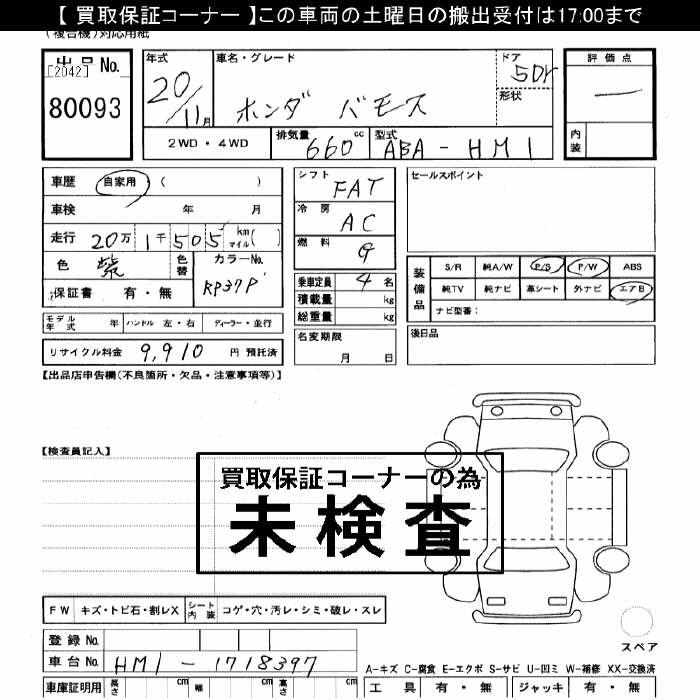 【 買取保証コーナー 】この車両の土曜日の搬出受付は17:00まで
(複合機)対応用紙
出品 No.
[2042]
80093
年式
20/11月
車名・グレード
ホンダ バモス
ドア
5Dr
形状
評価点
―
内装
2WD・4WD
排気量 660 cc
型式 ABA-HM1
車歴 自家用・( )
車検 年 月
走行 20万1千505 km マイル( )
色 紫
色替
カラーNo.
RP37P
保証書 有・無
モデル年式 年 ハンドル 左・右 ディーラー・並行
リサイクル料金 9,910 円 預託済
シフト FAT
冷房 AC
燃料 G
乗車定員 4名
積載量 kg
総重量 kg
名変期限
月 日
セールスポイント
装備品
S/R 純A/W P/S P/W ABS
純TV 純ナビ 革シート 外ナビ エアB
ナビ型番:
後日品
【出品店申告欄(不良箇所・欠品・注意事項等)】
【検査員記入】
買取保証コーナーの為
未検査
FW キズ・トビ石・割レX
シート内装 コゲ・穴・汚レ・シミ・破レ・スレ
登録 No.
車台 No. HM1-1718397
車庫証明用 長さ cm 幅 cm 高さ cm
スペア
A-キズ C-腐食 E-エクボ S-サビ U-凹ミ W-補修 XX-交換済
工具 有・無 ジャッキ 有・無